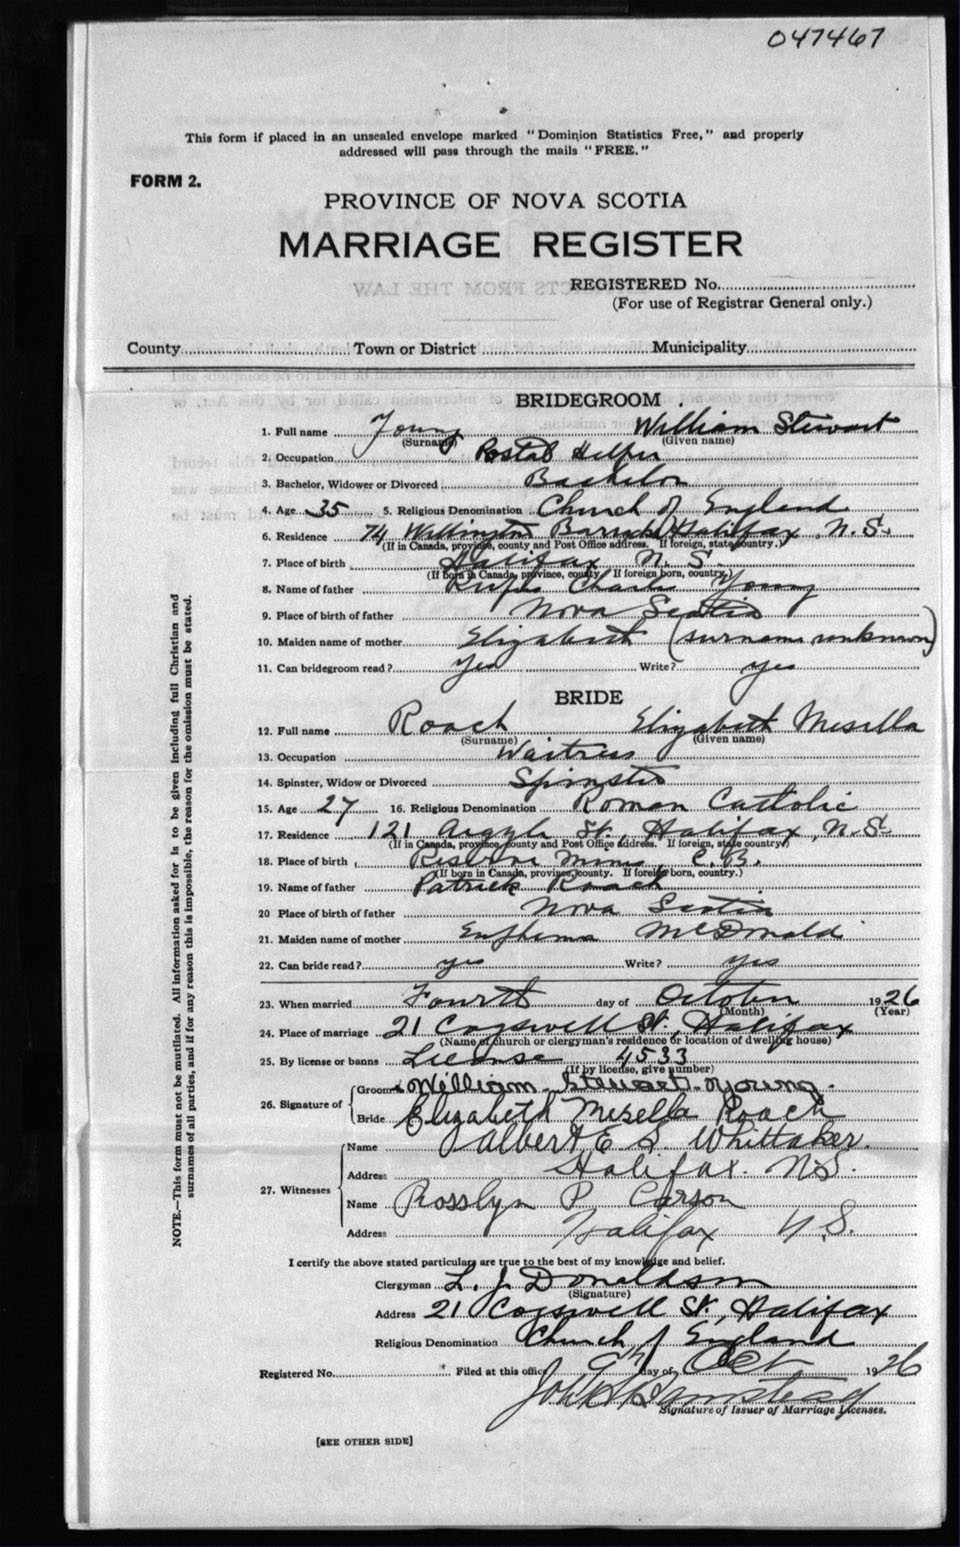 047467
This form if placed in an unsealed envelope marked "Dominion Statistics Free," and properly
addressed will pass through the mails "FREE."
FORM 2.
PROVINCE OF NOVA SCOTIA
MARRIAGE REGISTER
REGISTERED No.
(For use of Registrar General only.)
County Town or District Municipality
BRIDEGROOM
1. Full name Young William Stewart
(Surname) (Given name)
2. Occupation Postal Helper
3. Bachelor, Widower or Divorced Bachelor
4. Age 35 5. Religious Denomination Church of England
6. Residence 74 Wellington Barracks Halifax, N.S.
(If in Canada, province, county and Post Office address. If foreign, state country.)
7. Place of birth Halifax N.S.
(If born in Canada, province, county If foreign born, country.)
8. Name of father Rufus Charles Young
9. Place of birth of father Nova Scotia
10. Maiden name of mother Elizabeth (surname unknown)
11. Can bridegroom read? Yes Write? yes
BRIDE
12. Full name Roach Elizabeth Mesella
(Surname) (Given name)
13. Occupation Waitress
14. Spinster, Widow or Divorced Spinster
15. Age 27 16. Religious Denomination Roman Catholic
17. Residence 121 Argyle St., Halifax, N.S.
(If in Canada, province, county and Post Office address. If foreign, state country)
18. Place of birth Reserve Mines, C.B.
(If born in Canada, province, county. If foreign born, country.)
19. Name of father Patrick Roach
20 Place of birth of father Nova Scotia
21. Maiden name of mother Euphema McDonald
22. Can bride read? yes Write? yes
23. When married Fourth day of October 1926
(Month) (Year)
24. Place of marriage 21 Cogswell St., Halifax
(Name of church or clergyman's residence or location of dwelling house)
25. By license or banns License 4533
(If by license, give number)
26. Signature of Groom William Stewart Young.
Bride Elizabeth Mesella Roach
27. Witnesses Name Albert E. S. Whittaker.
Address Halifax. N.S.
Name Rosslyn P Carson
Address Halifax N.S.
I certify the above stated particulars are true to the best of my knowledge and belief.
Clergyman L. J. Donaldson
(Signature)
Address 21 Cogswell St., Halifax
Religious Denomination Church of England
Registered No. Filed at this office day of Oct 1926
Signature of Issuer of Marriage Licenses.
[SEE OTHER SIDE]
NOTE.—This form must not be mutilated. All information asked for is to be given including full Christian and
surnames of all parties, and if for any reason this is impossible, the reason for the omission must be stated.